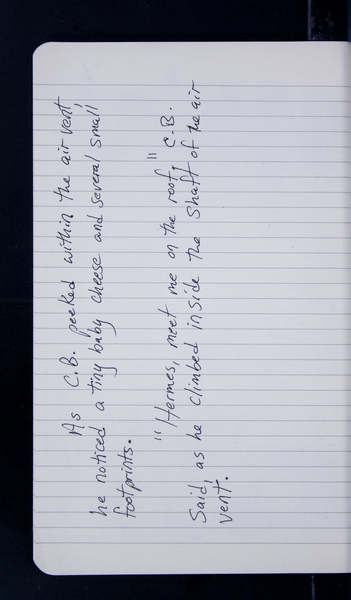 As C.B. peeked within the air vent,
he noticed a tiny baby cheese and several small
footprints.
"Hermes, meet me on the roof," C.B.
Said, as he climbed inside the shaft of the air
vent.